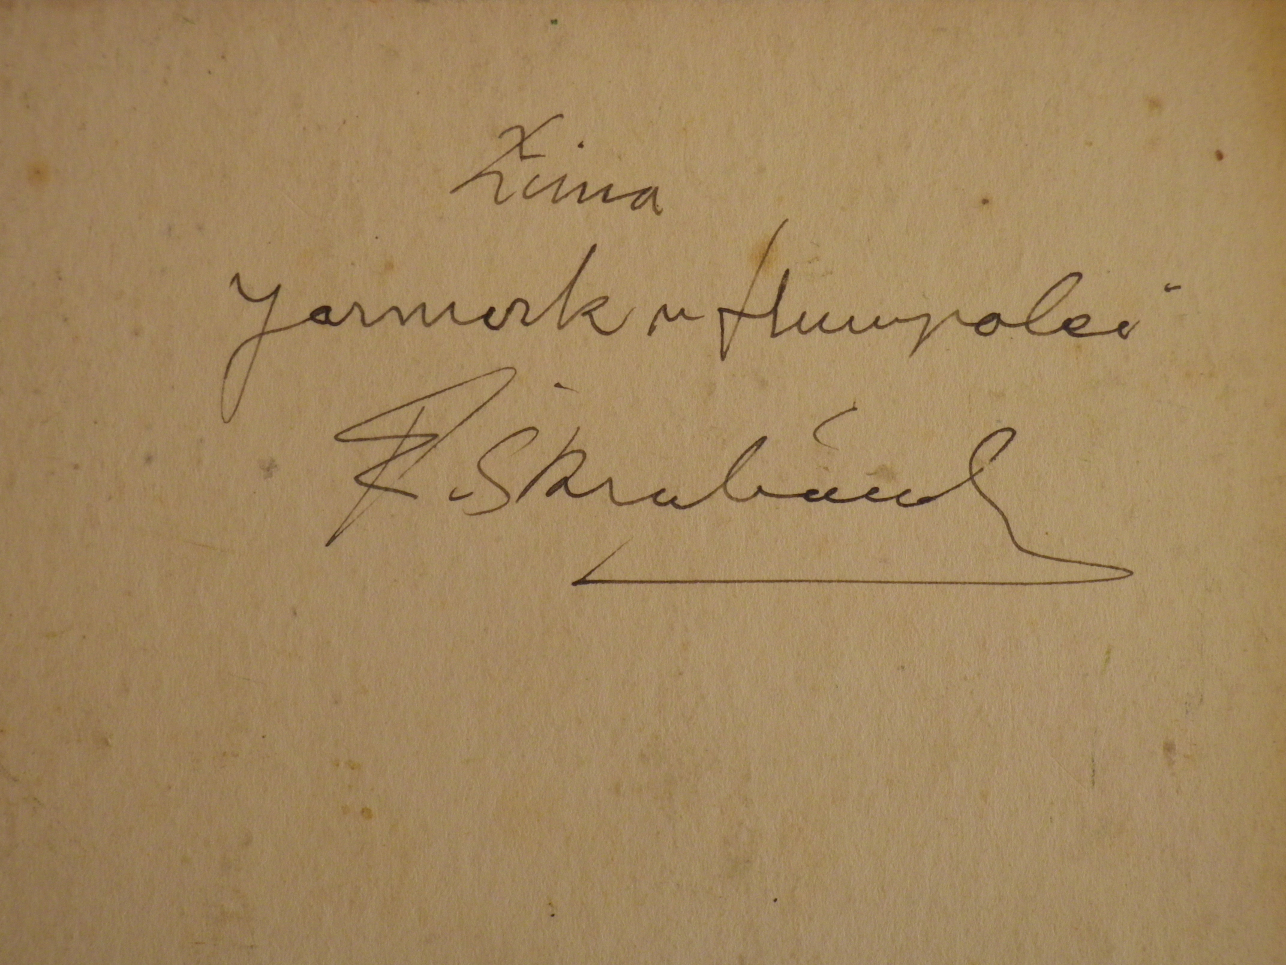 Zima
Jarmark v Humpolci
R. Škrabánek